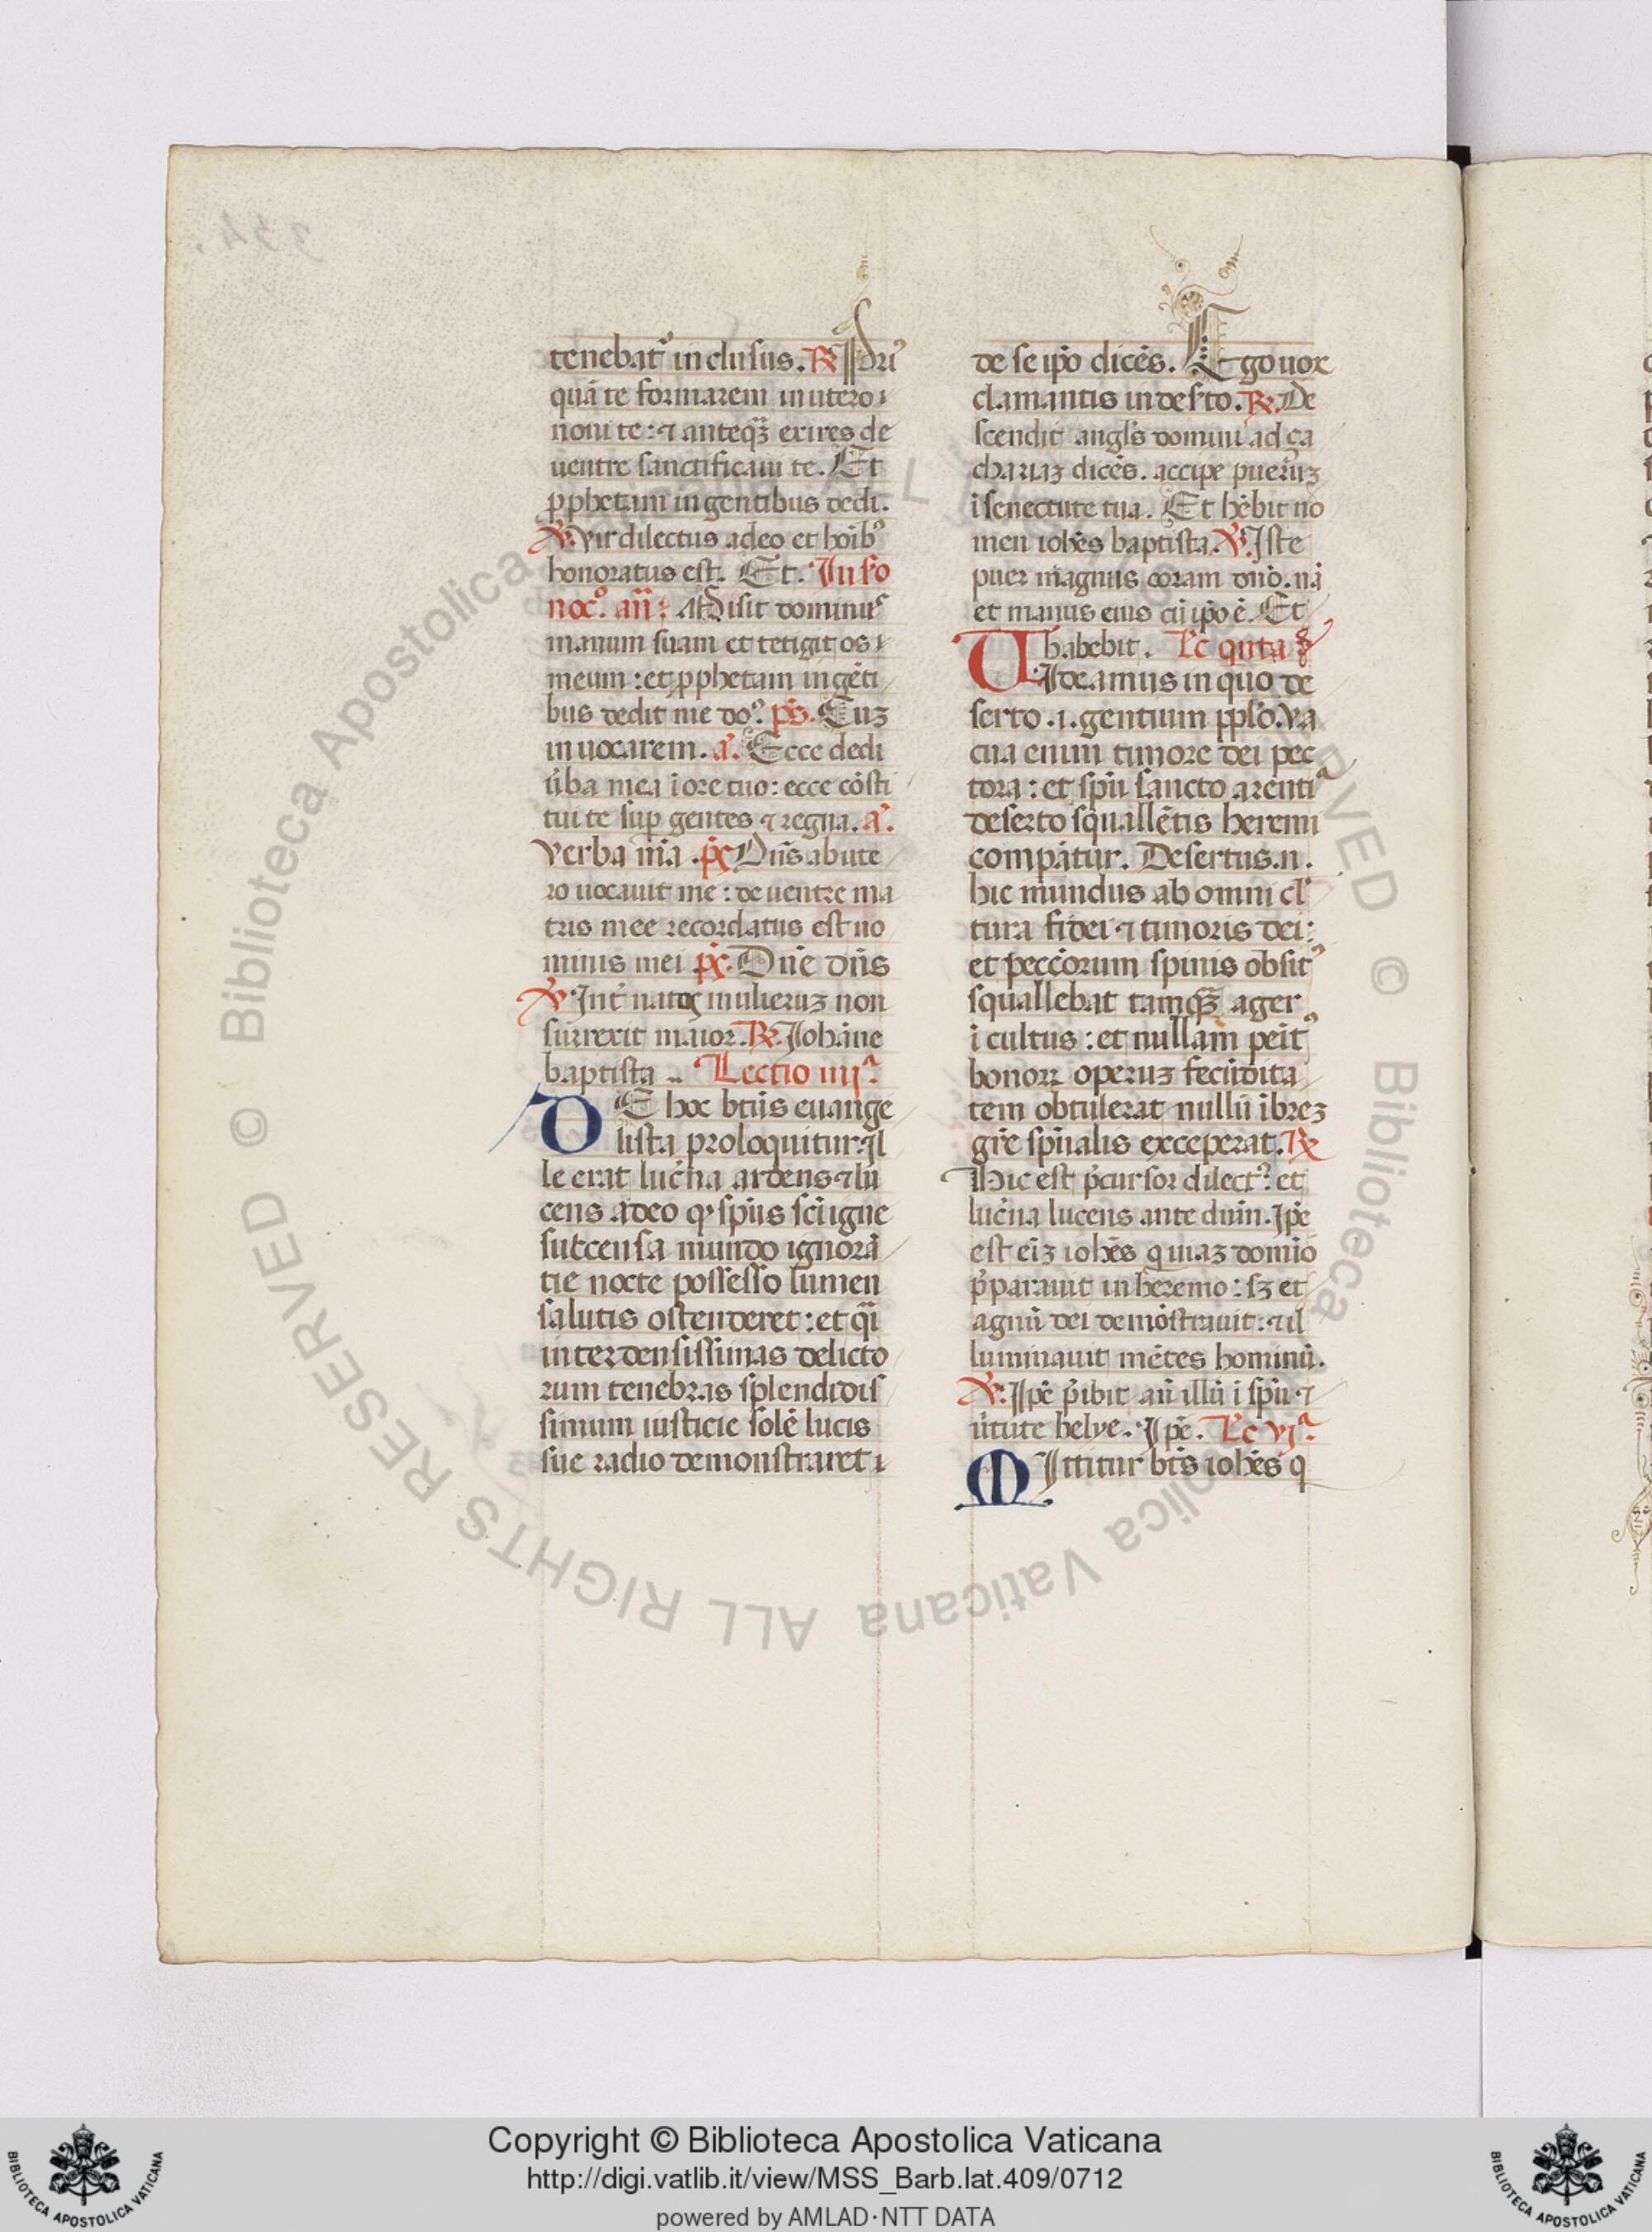 tenebat᷒ inclusus. ℟ Pri᷒
quā te formarem in utero
noui te: ⁊ anteqꝫ exires de
uentre sanctificaui te. Et
ꝓphetam in gentibus dedi.
℣. Vir dilectus a deo et hoīb᷒
honoratus est. Et. In ſo
noc͛o. añ: Misit dominus
manum suam et tetigit os
meum: et ꝓphetam in gēti
bus dedit me do᷒. ps̄. Cuꝫ
inuocarem. a͛. Ecce dedi
ūba mea ī ore tuo: ecce cōsti
tui te sup gentes ⁊ regna. a͛.
Verba m̄a. p̄s Dn̄s ab ute
ro uocauit me: de uentre ma
tris mee recordatus est no
minis mei p̄s. Dn̄e dn̄s
℣ Int̄ natoꝝ mulieruꝫ non
surrexit maior. ℟. Iohāne
baptista. Lectio iiijᵃ.
DE hoc btūs euange
lista proloquitur. Il
le erat luc̄na ardens ⁊ lu
cens adeo qꝫ spūs sc̄i igne
succensa mundo ignorā
tie nocte possesso lumen
salutis ostenderet: et q̄i
inter densissimas delicto
rum tenebras splendidis
simum iusticie solē lucis
sue radio demonstraret
de se ip̄o dicēs. Ego uox
clamantis in des̄to. ℟. De
scendit angl̄s domini ad ça
chariaꝫ dicēs. accipe pueruꝫ
ī senectute tua. Et hēbit no
men ioh̄es baptista. ℣. Iste
puer magnus coram dn̄o. nā
et manus eius cū ip̄o ē. Et
habebit. Lc̄ qnta
VIdeamus in quo de
serto .i. gentium ppl̄o. Va
cua enim timore dei pec
tora: et spū sancto arenti᷒
deserto squallētis heremi
compātur. Desertus .n.
hic mundus ab omni cl᷒
tura fidei ⁊ timoris dei:
et pecc̄orum spinis obsit᷒
squallebat tamqꝫ ager
ī cultus: et nullam peīt᷒
bonoꝝ operuꝫ fecūdita
tem obtulerat nullū ībreꝫ
gr̄e spūalis exceperat. ℟
Hic est p̄cursor dilect᷒: et
luc̄na lucens ante dn̄m. Ip̄e
est eīꝫ ioh̄es q uiaꝫ domīo
p̄parauit in heremo: sꝫ et
agnū dei demōstrauit: ⁊ il
luminauit mētes hominū.
℣: Ip̄e p̄ibit añ illū ī spū ⁊
ūtute helye. Ip̄e. Lc̄ vjᵃ.
MIttitur bt̄s ioh̄es q
Copyright © Biblioteca Apostolica Vaticana
http://digi.vatlib.it/view/MSS_Barb.lat.409/0712
powered by AMLAD·NTT DATA
BIBLIOTECA APOSTOLICA VATICANA
BIBLIOTECA APOSTOLICA VATICANA
© Biblioteca Apostolica Vaticana ALL RIGHTS RESERVED
334.